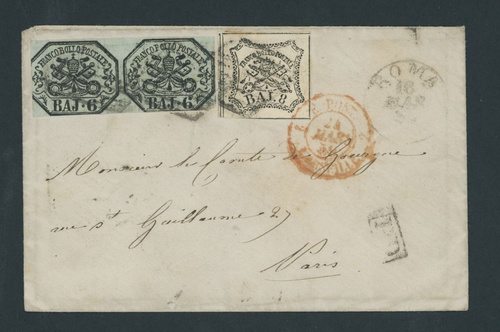 FRANCO BOLLO POSTALE
BAJ. 6
FRANCO BOLLO POSTALE
BAJ. 6
FRANCO BOLLO POSTALE
BAJ. 8
ROMA
16
MAR
Monsieur le Comte de Gourgue
rue St Guillaume 27
Paris